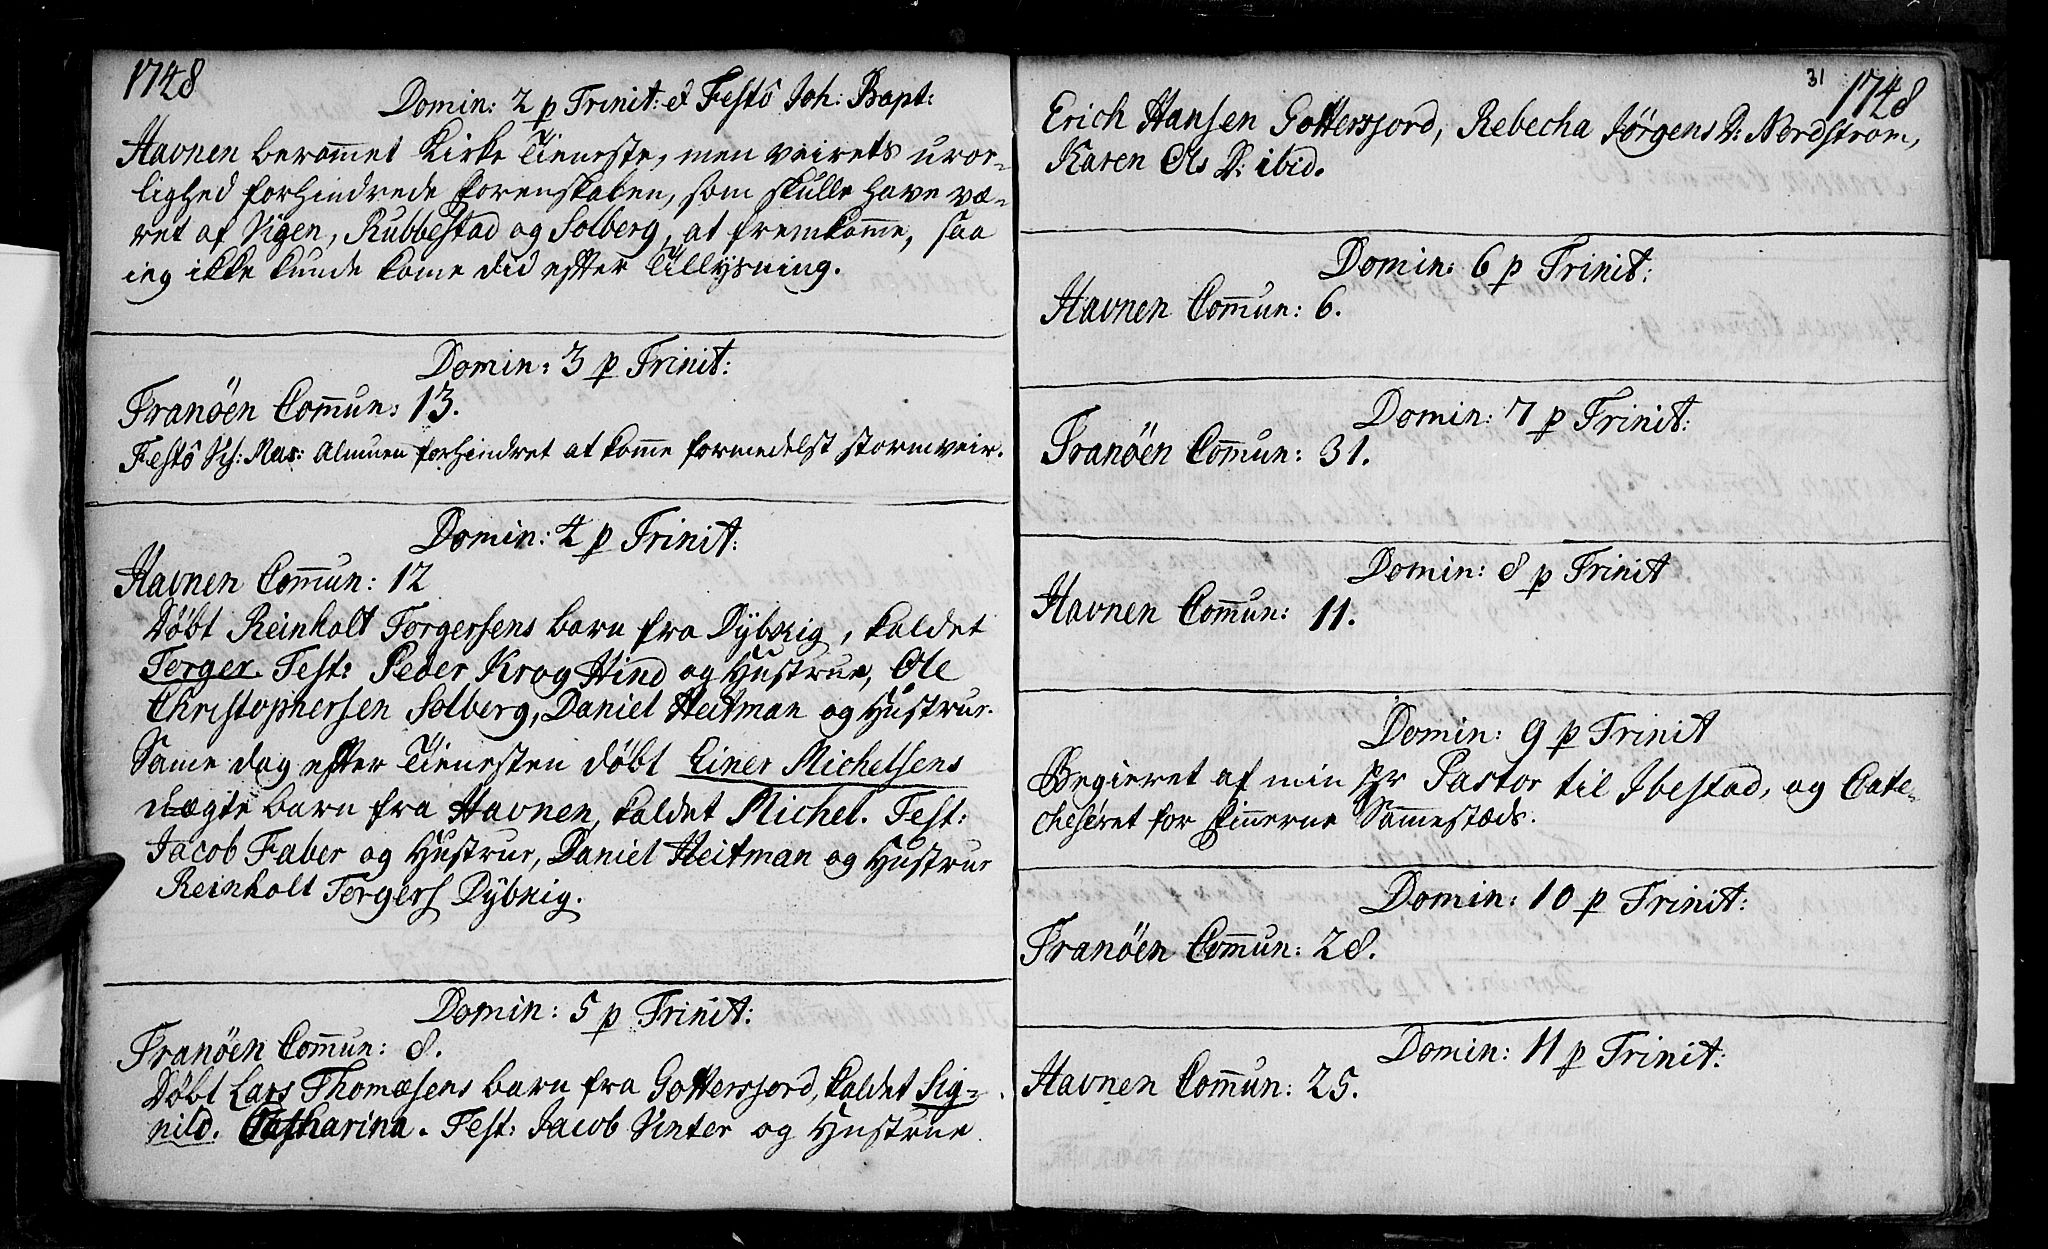 1748
Domin: 2 p Trinit: et Festo Joh: Bapt:
Havnen berammet Kirke Tieneste, men veirets uroe-
lighed forhindrede Forenskaben, som skulle have væ-
ret af Vigen, Rubbestad og Solberg, at fremkomme, saa
ieg ikke kunde kome did efter Tillysning.
Domin: 3 p Trinit:
Tranöen Comun: 13.
Festo Vis: Mar: Almuen forhindret at komme formedelst stormveir.
Domin: 4 p Trinit:
Havnen Comun: 12
Döbt Reinholt Torgersens barn fra Dÿbvig, kaldet
Torger. Test: Peder Krog Hind og Hustrue, Ole
Christophersen Solberg, Daniel Heitman og Hustrue.
Same dag efter Tienesten döbt Einer Michelsens
uægte barn fra Havnen, kaldet Michel. Test:
Jacob Faber og Hustrue, Daniel Heitman og Hustrue
Reinholt Torgers Dÿbvig.
Domin: 5 p Trinit:
Tranöen Comun: 8.
Döbt Lars Thomæsens barn fra Gottersfjord, kaldet Sig-
nild. Catharina. Test: Jacob Vinter og Hustrue
31 1748
Erich Hansen Gottersfjord, Rebecha Jörgens D: Nordstrom,
Karen Ols D: ibid.
Domin: 6 p Trinit:
Havnen Comun: 6.
Domin: 7 p Trinit:
Tranöen Comun: 31.
Domin: 8 p Trinit
Havnen Comun: 11.
Domin: 9 p Trinit
Begieret af min Hr Pastor til Ibestad, og Cate-
cheseret for Finnerne Sammestæds.
Domin: 10 p Trinit:
Tranöen Comun: 28.
Domin: 11 p Trinit:
Havnen Comun: 25.